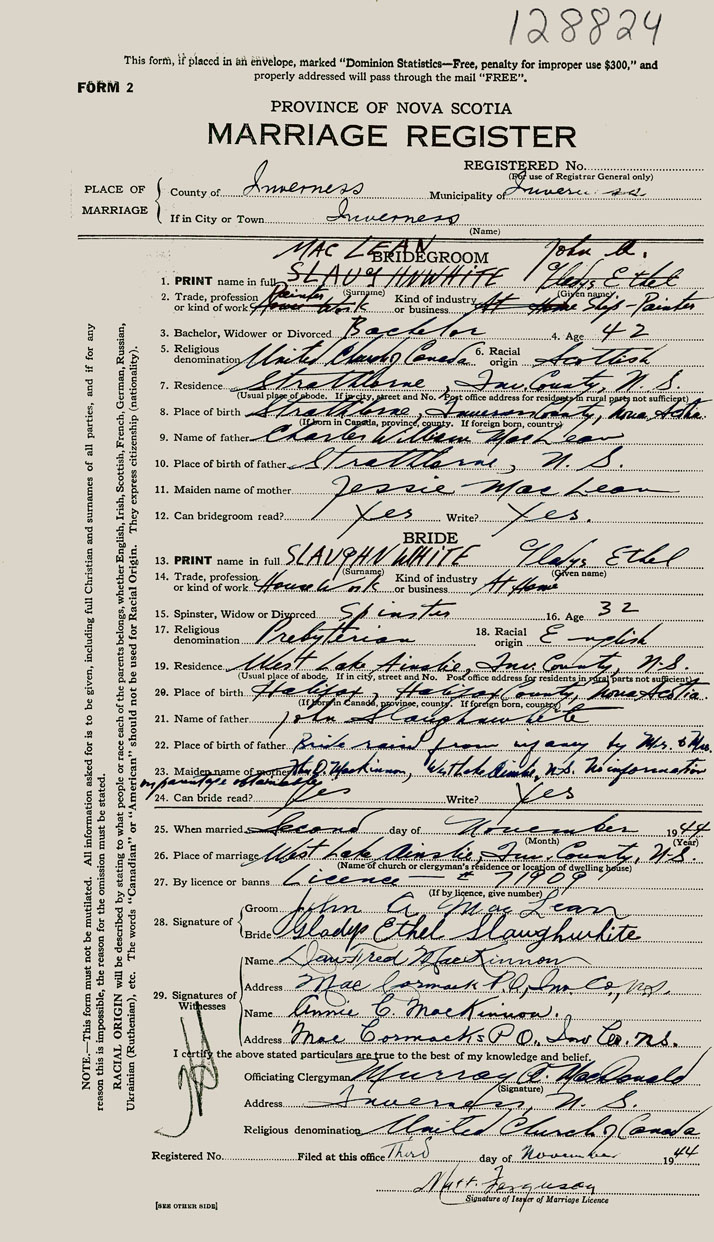 128824
This form, if placed in an envelope, marked "Dominion Statistics—Free, penalty for improper use $300," and
properly addressed will pass through the mail "FREE".
FORM 2
PROVINCE OF NOVA SCOTIA
MARRIAGE REGISTER
REGISTERED No.
(For use of Registrar General only)
PLACE OF MARRIAGE
County of Inverness Municipality of Inverness
If in City or Town Inverness
(Name)
MAC LEAN John A.
BRIDEGROOM
1. PRINT name in full SLAUGHNWHITE Gladys Ethel
(Surname) (Given name)
2. Trade, profession or kind of work House Work Painter Kind of industry or business At Home Self-Painter
3. Bachelor, Widower or Divorced Bachelor 4. Age 42
5. Religious denomination United Church of Canada 6. Racial origin Scottish
7. Residence Strathlorne, Inv. County, N. S.
(Usual place of abode. If in city, street and No. Post office address for residents in rural parts not sufficient)
8. Place of birth Strathlorne, Inverness County, Nova Scotia.
(If born in Canada, province, county. If foreign born, country)
9. Name of father Charles William MacLean
10. Place of birth of father Strathlorne, N. S.
11. Maiden name of mother Jessie MacLean
12. Can bridegroom read? Yes Write? Yes.
BRIDE
13. PRINT name in full SLAUGHNWHITE Gladys Ethel
(Surname) (Given name)
14. Trade, profession or kind of work House Work Kind of industry or business At Home
15. Spinster, Widow or Divorced Spinster 16. Age 32
17. Religious denomination Presbyterian 18. Racial origin English
19. Residence West Lake Ainslie, Inv. County, N.S.
(Usual place of abode. If in city, street and No. Post office address for residents in rural parts not sufficient)
20. Place of birth Halifax, Halifax County, Nova Scotia.
(If born in Canada, province, county. If foreign born, country)
21. Name of father John Slaughnwhite
22. Place of birth of father Bride raised from infancy by Mr. & Mrs.
23. Maiden name of mother D. MacKinnon, West Lake Ainslie, N.S. No information
on parentage obtainable
24. Can bride read? Yes Write? Yes
25. When married Second day of November 1944
(Month) (Year)
26. Place of marriage West Lake Ainslie, Inv. County, N-S.
(Name of church or clergyman's residence or location of dwelling house)
27. By licence or banns Licence — # 71909
(If by licence, give number)
28. Signature of Groom John A MacLean
Bride Gladys Ethel Slaughwhite
29. Signatures of Witnesses
Name Dan Fred MacKinnon
Address MacCormack P.O, Inv. Co, N.S.
Name Annie C. MacKinnon.
Address Mac Cormacks P O., Inv Co. N.S.
I certify the above stated particulars are true to the best of my knowledge and belief.
Officiating Clergyman Murray A. MacDonald
(Signature)
Address Inverness, N. S.
Religious denomination United Church of Canada
Registered No. Filed at this office Third day of November 1944
Matt. Ferguson
Signature of Issuer of Marriage Licence
[SEE OTHER SIDE]
NOTE.—This form must not be mutilated. All information asked for is to be given, including full Christian and surnames of all parties, and if for any
reason this is impossible, the reason for the omission must be stated.
RACIAL ORIGIN will be described by stating to what people or race each of the parents belongs, whether English, Irish, Scottish, French, German, Russian,
Ukrainian (Ruthenian), etc. The words "Canadian" or "American" should not be used for Racial Origin. They express citizenship (nationality).